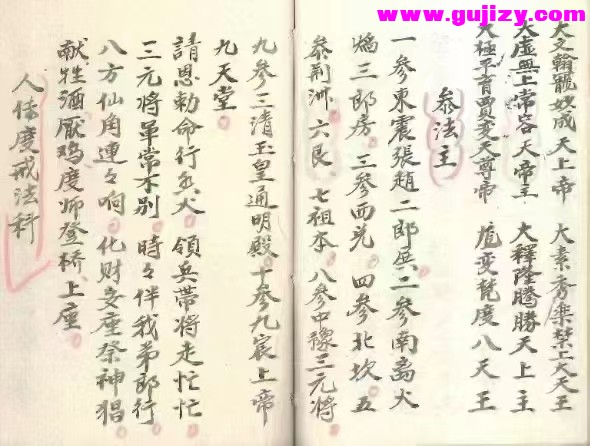 www.gujizy.com
太文翰寵妓成天上帝 太素秀樂禁上天王
太虛無上帝容天帝主 太釋隆騰勝天上主
太極平育賈奕天尊帝 變梵度八天王
叅法主
一參東震張趙二郎兵二參南离火
燭三郎房 三參西兑 四參北坎五
叅荆洲 六艮 七祖本 八參中豫三元將
九參三清玉皇通明殿十參九宸上帝
九天堂
請恩勅命行兵火 領兵帶將走忙忙
三元將軍常不別 時々伴我弟郎行
八方仙角連々响 化財安座祭神猖
献牲酒 鸡度师登橋上座
人倩度戒法科